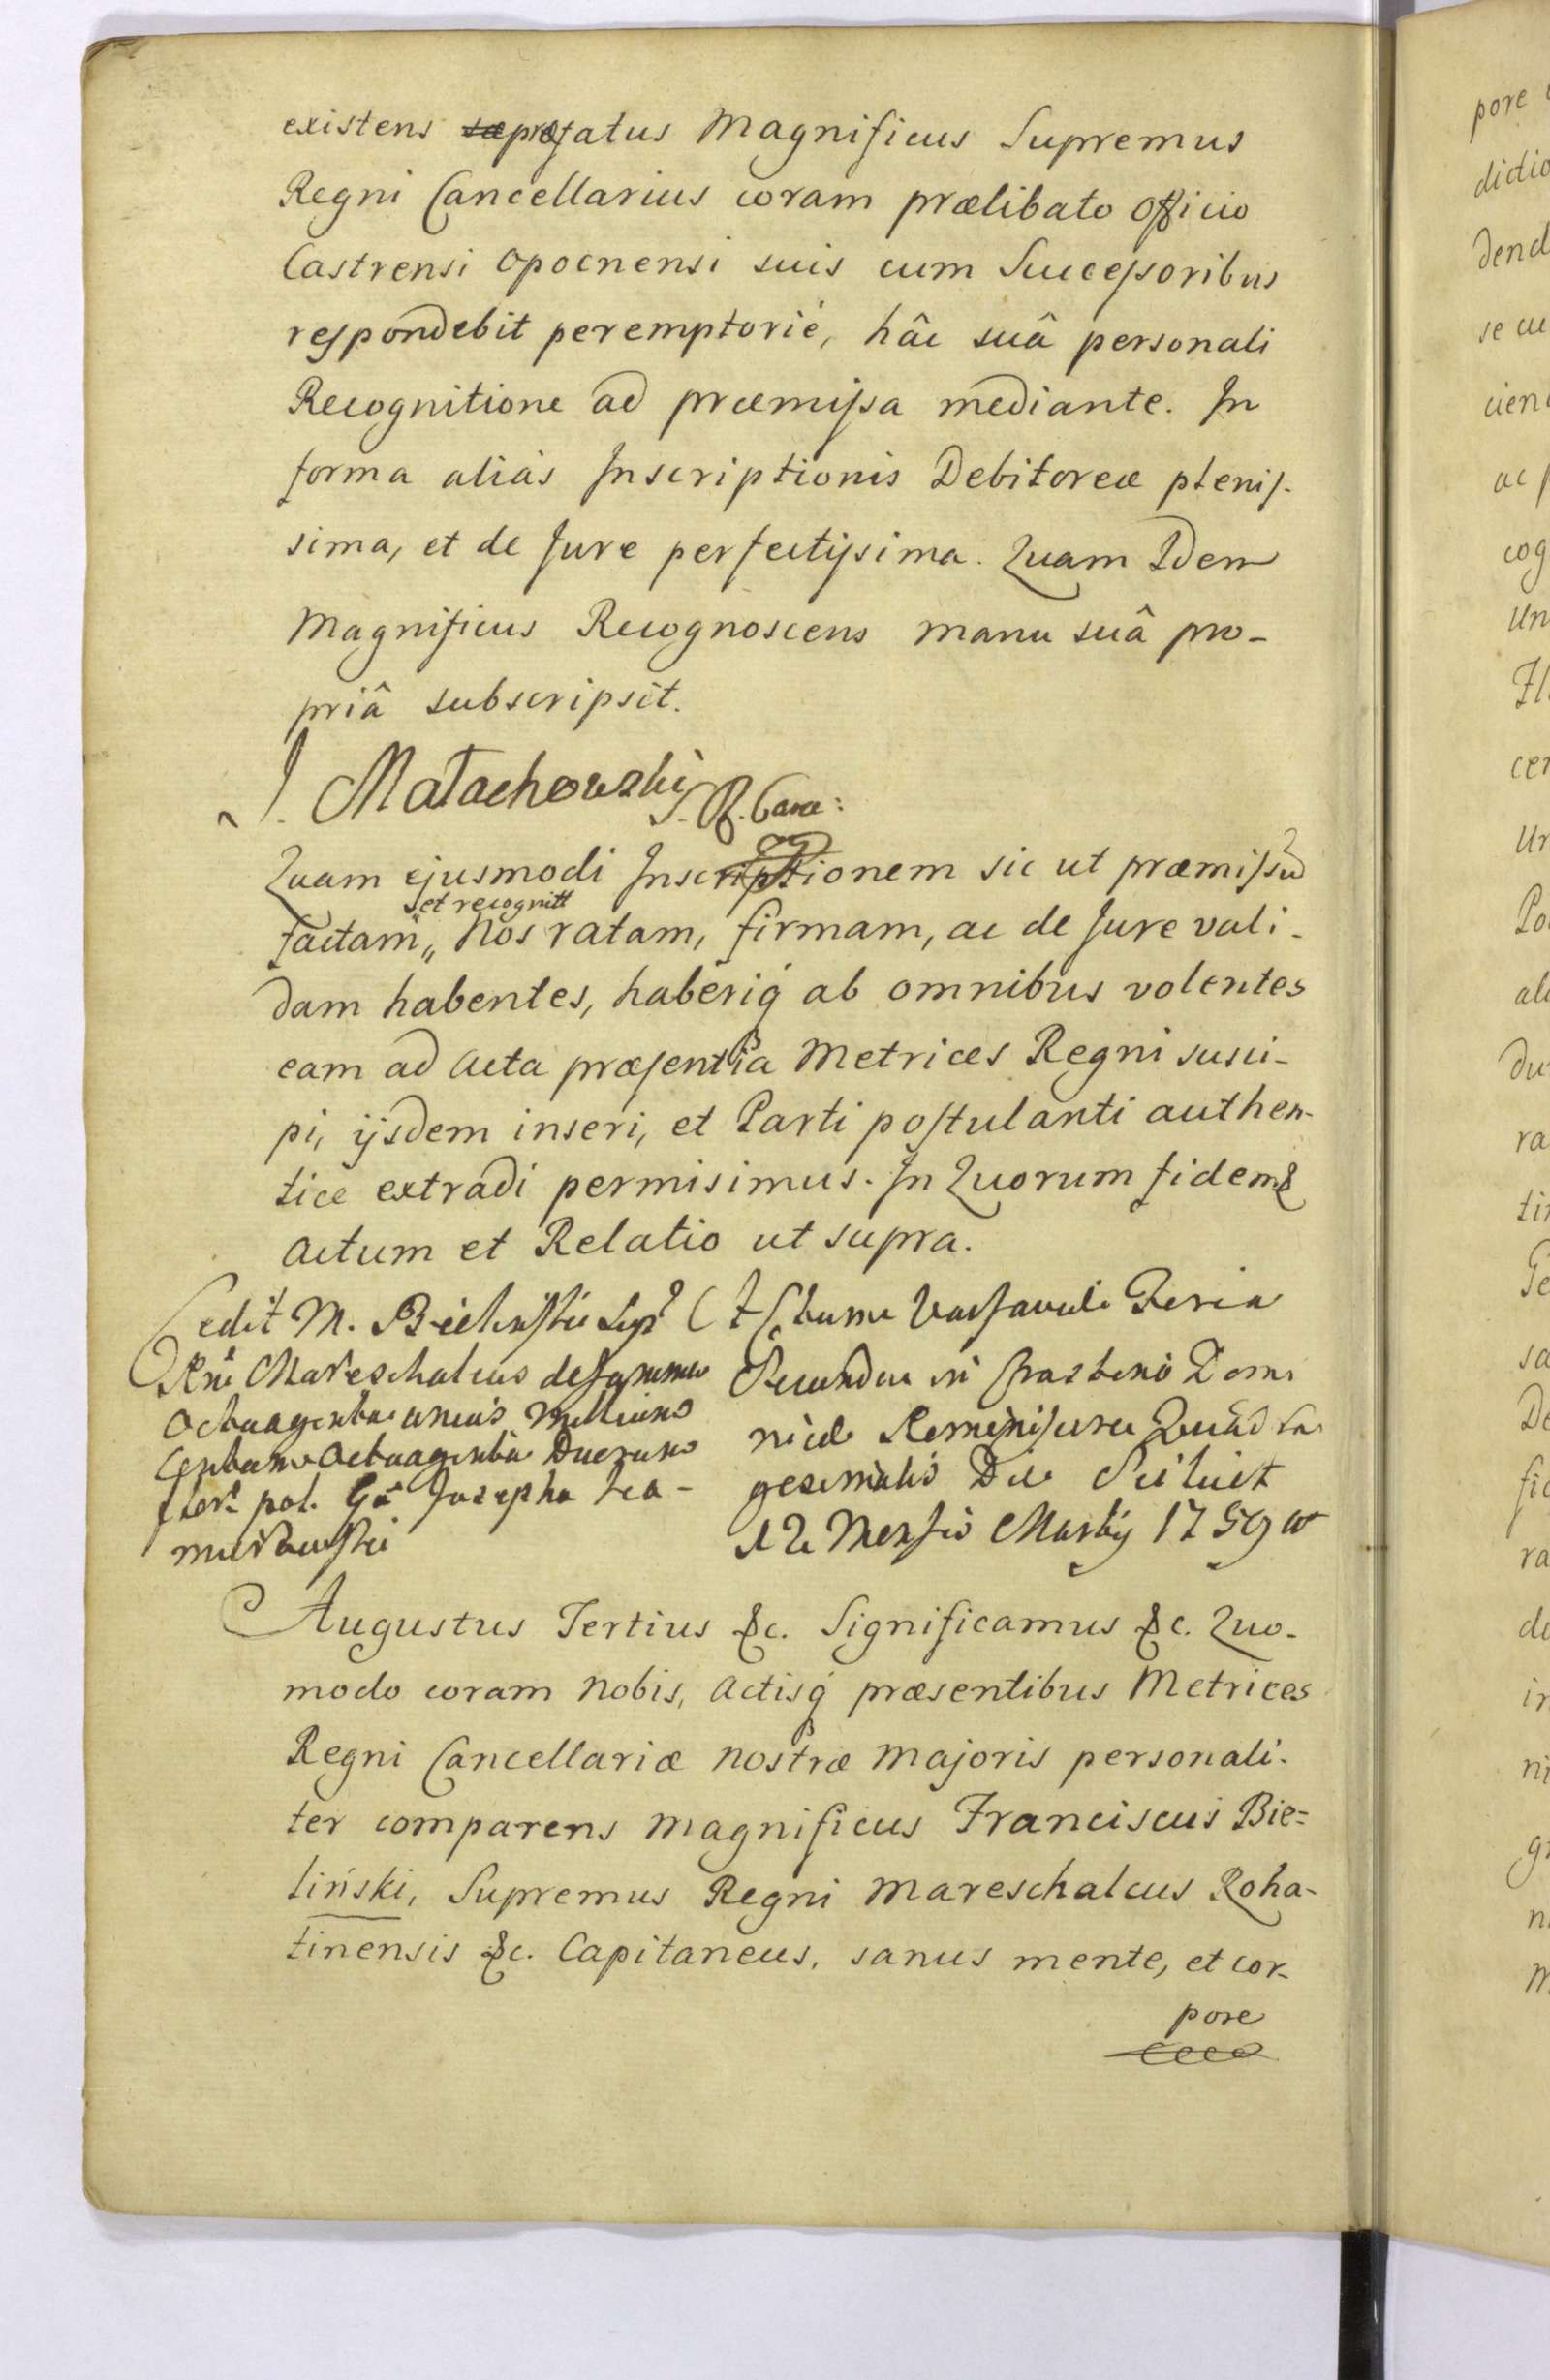 existens præfatus Magnificus Supremus
Regni Cancellarius coram prælibato Officio
Castrensi Opocnensi suis cum Successoribus
respondebit peremptoriè, hâc suâ personali
Recognitione ad præmissa mediante. In
forma aliàs Inscriptionis Debitoreæ plenis-
sima, et de Jure perfectissima. Quam Idem
Magnificus Recognoscens manu suâ pro-
priâ subscripsit.
J. Małachowski S. R. Canc:
Quam ejusmodi Inscriptionem sic ut præmissũ
et recognitt
factam„ Nos ratam, firmam, ac de Jure vali-
dam habentes, haberiq́ ab omnibus volentes
eam ad Acta præsentia Metrices Regni susci-
pi, ijsdem inseri, et Parti postulanti authen-
tice extradi permisimus. In Quorum fidem &
Actum et Relatio ut supra.
Cedit M. Bielinski Supr
Rni Mareschalcus de summa
Octuaginta unius Millium
Centum Octuaginta Ducen
flor. pol. Gã Josepha
Actum Varsaviæ Feria
Secunda in Crastino Domi
nicæ Reminiscere Quadra
gesimalis Die Scilicet
12 Mensis Martij 1759 a
Augustus Tertius &c. Significamus &c. Quo-
modo coram Nobis, Actisq́ præsentibus Metrices
Regni Cancellariæ Nostræ Majoris personali-
ter comparens Magnificus Franciscus Bie=
liński, Supremus Regni Mareschalcus Roha-
tinensis &c. Capitaneus, sanus mente, et cor-
pore
pore
dictio
dend
se cu
cien
ac
cog
Un
cer
Ur
Po
ali
du
ra
tin
Ge
sa
De
fic
ra
de
in
ni
gr
n
m